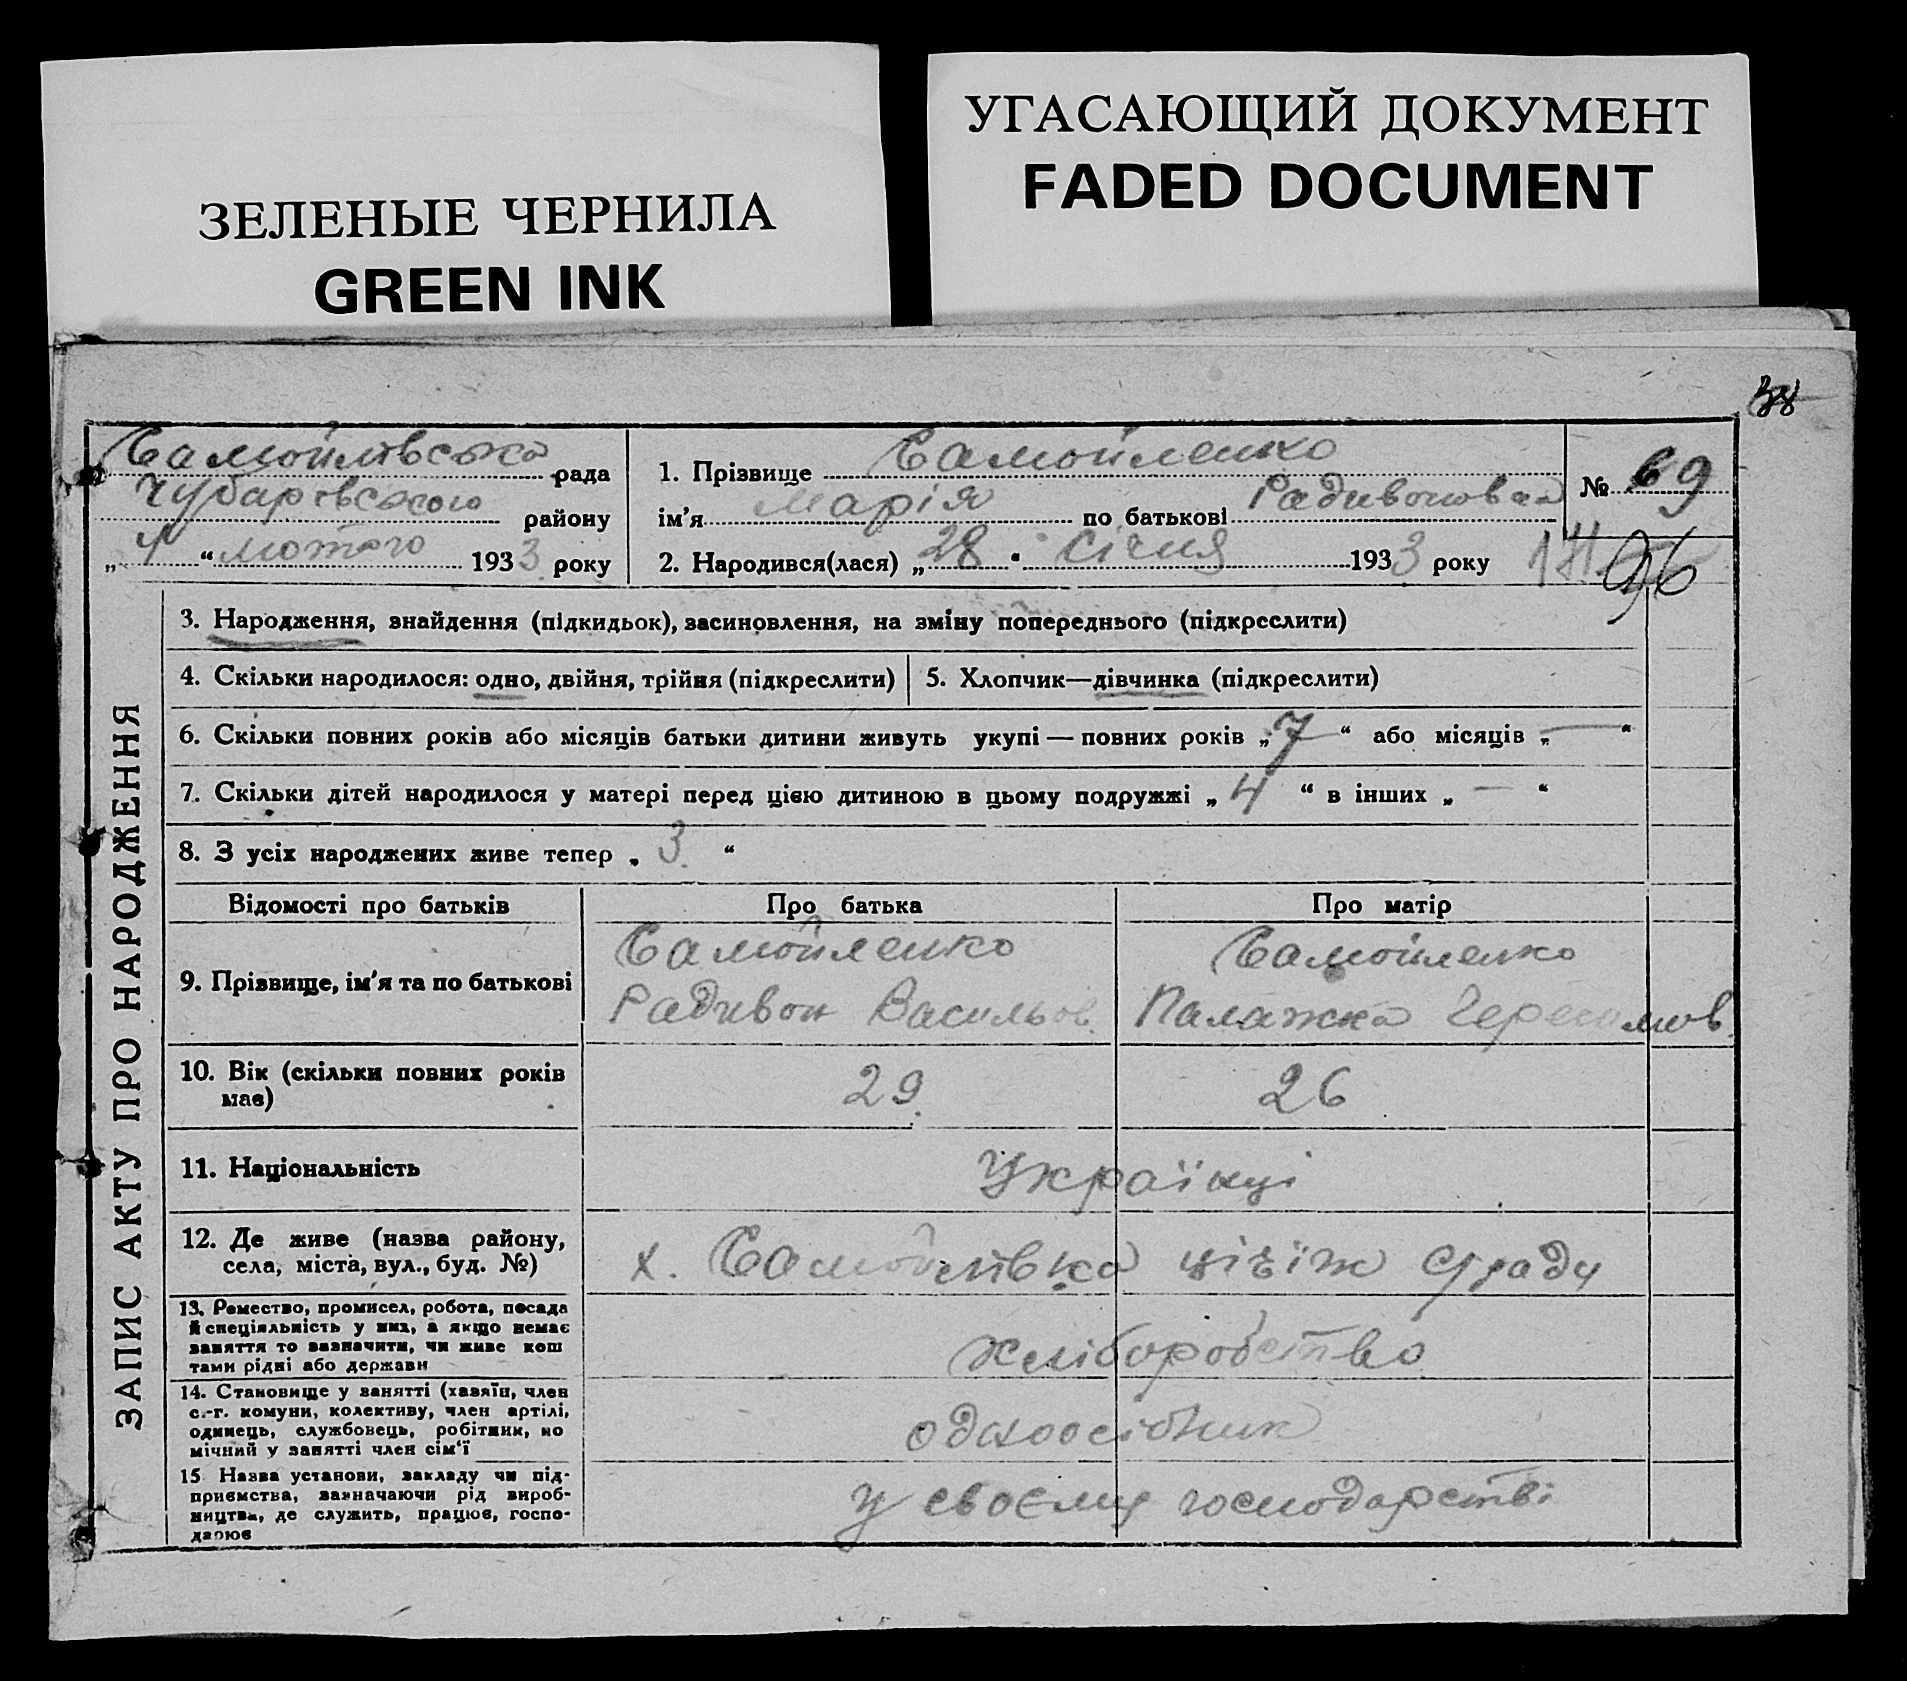 ЗЕЛЕНЫЕ ЧЕРНИЛА
GREEN INK
УГАСАЮЩИЙ ДОКУМЕНТ
FADED DOCUMENT
38
Самойлівська рада
Чубарівського району
„ 1 “ лютого 1933 року
1. Прізвище Самойленко
ім'я Марія по батькові Радивоновна
2. Народився(лася) „ 28 “ Січня 1933 року
№ 69
96
ЗАПИС АКТУ ПРО НАРОДЖЕННЯ
3. Народження, знайдення (підкидьок), засиновлення, на зміну попереднього (підкреслити)
4. Скільки народилося: одно, двійня, трійня (підкреслити)
5. Хлопчик—дівчинка (підкреслити)
6. Скільки повних років або місяців батьки дитини живуть укупі — повних років „ 7 “ або місяців „ — “
7. Скільки дітей народилося у матері перед цією дитиною в цьому подружжі „ 4 “ в інших „ — “
8. З усіх народжених живе тепер „ 3 “
Відомості про батьків
Про батька
Про матір
9. Прізвище, ім'я та по батькові
Самойленко
Радивон Васильов.
Самойленко
Палажка
10. Вік (скільки повних років
має)
29
26
11. Національність
Українці
12. Де живе (назва району,
села, міста, вул., буд. №)
х. Самойлівка цієїж с/ради
13. Ремество, промисел, робота, посада
й спеціяльність у них, а якщо немає
заняття то зазначити, чи живе кош
тами рідні або держави
хліборобство
14. Становище у занятті (хазяїн, член
с.-г. комуни, колективу, член артілі,
одинець, службовець, робітник, по
мічний у занятті член сім'ї
одноосібник
15 Назва установи, закладу чи під-
приємства, зазначаючи рід вироб-
ництва, де служить, працює, госпо-
дарює
у своєму господарстві